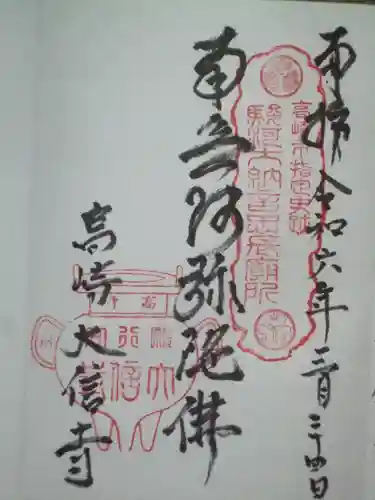 再拝 令和六年 二月二十四日
高崎市指定史跡
駿河大納言忠長廟所
南無阿弥陀佛
高崎 大信寺